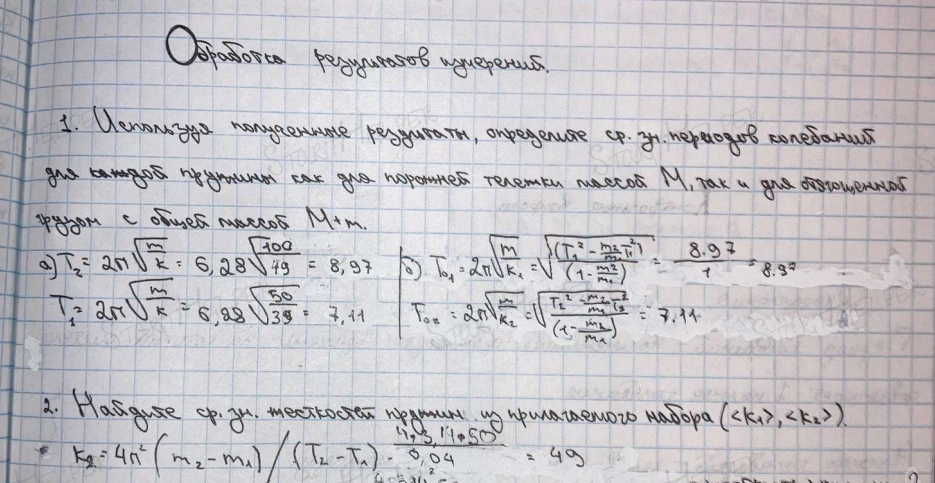 Обработка результатов измерений.
1. Используя полученные результаты, определите ср. зн. периодов колебаний
для каждой пружины как для порожней тележки массой M, так и для отягощенной
грузом с общей массой M+m.
а) T₂ = 2π√(m/k) = 6,28√(100/49) = 8,97
б) T₀₁ = 2π√(m/k₁) = √((T₁² - m₂/m₁ T₁²)/(1 - m₂/m₁)) = 8.97/1 = 8.97
T₁ = 2π√(m/k) = 6,28√(50/39) = 7,11
T₀₂ = 2π√(m/k₂) = √((T₂² - m₂/m₁ T₂²)/(1 - m₂/m₁)) = 7.11
2. Найдите ср. зн. жесткостей пружин из прилагаемого набора (<k₁>, <k₂>).
k₂ = 4π² (m₂ - m₁) / (T₂ - T₁) - 4·3,14·50/0,04 = 49